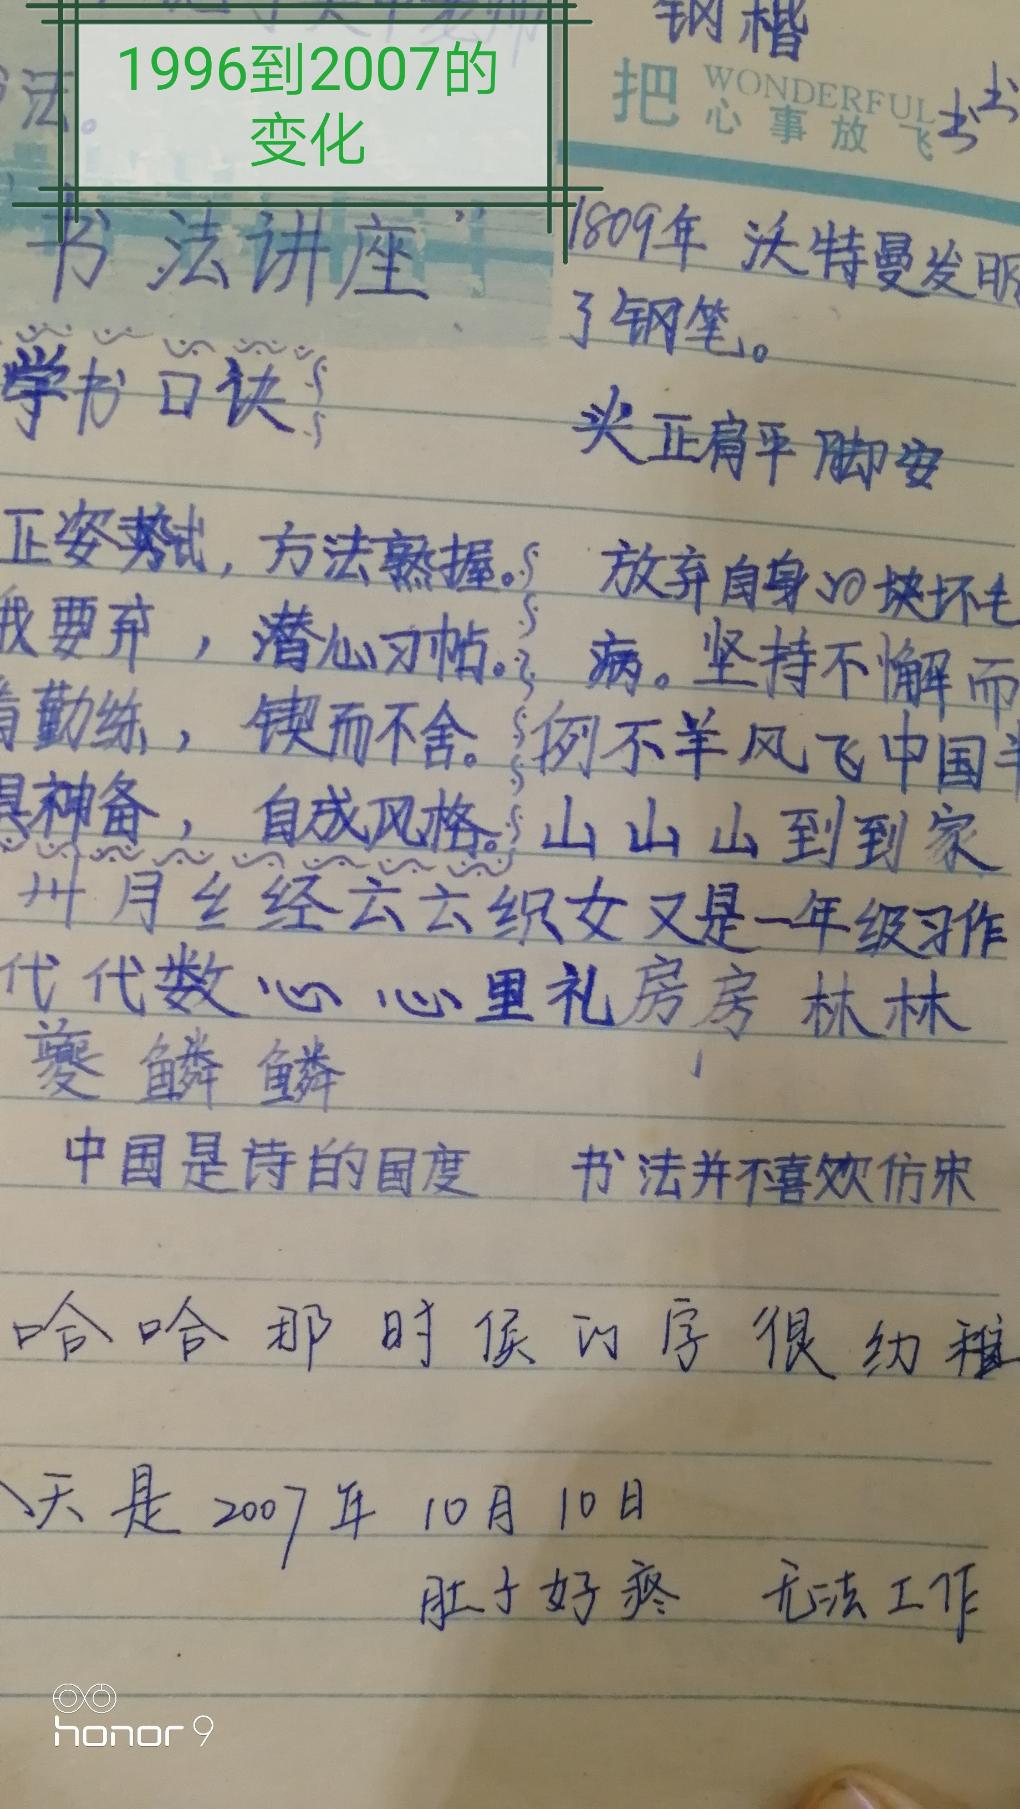 1996到2007的
变化
钢楷
WONDERFUL
把心事放飞
法。
书法讲座”
1809年 沃特曼发明
了钢笔。
学书口诀
头正肩平脚安
正姿势, 方法熟握。
放弃自身 块坏毛
我要弃, 潜心习帖。
病。坚持不懈而
着勤练, 锲而不舍。
例不羊风飞中国羊
具神备, 自成风格。
山山山到到家
卅月纟经云云织女又是一年级习作
代代数心心里礼房房林林
夔鳞鳞
中国是诗的国度 书法并不喜欢仿宋
哈哈那时候的字很幼稚
今天是2007年10月10日
肚子好疼 无法工作
honor 9